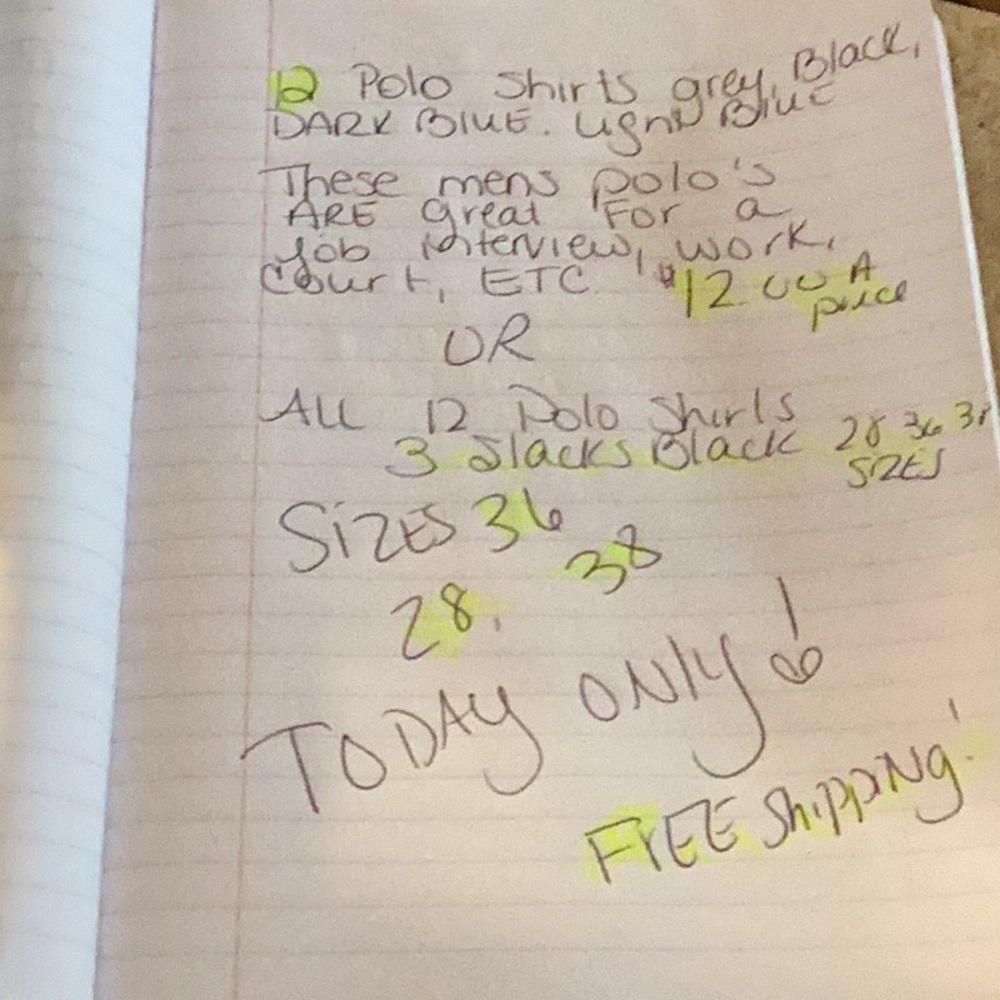 12 Polo Shirts grey, Black,
DARK BlUE. Light Blue
These mens polo's
ARE great For a
Job interview, work,
Court, ETC. $12.00 A
piece
OR
All 12 Polo Shirts
3 Slacks Black 28 36 38
SIZES
SiZES 36
28, 38
TODAY ONly!
FREE Shipping!